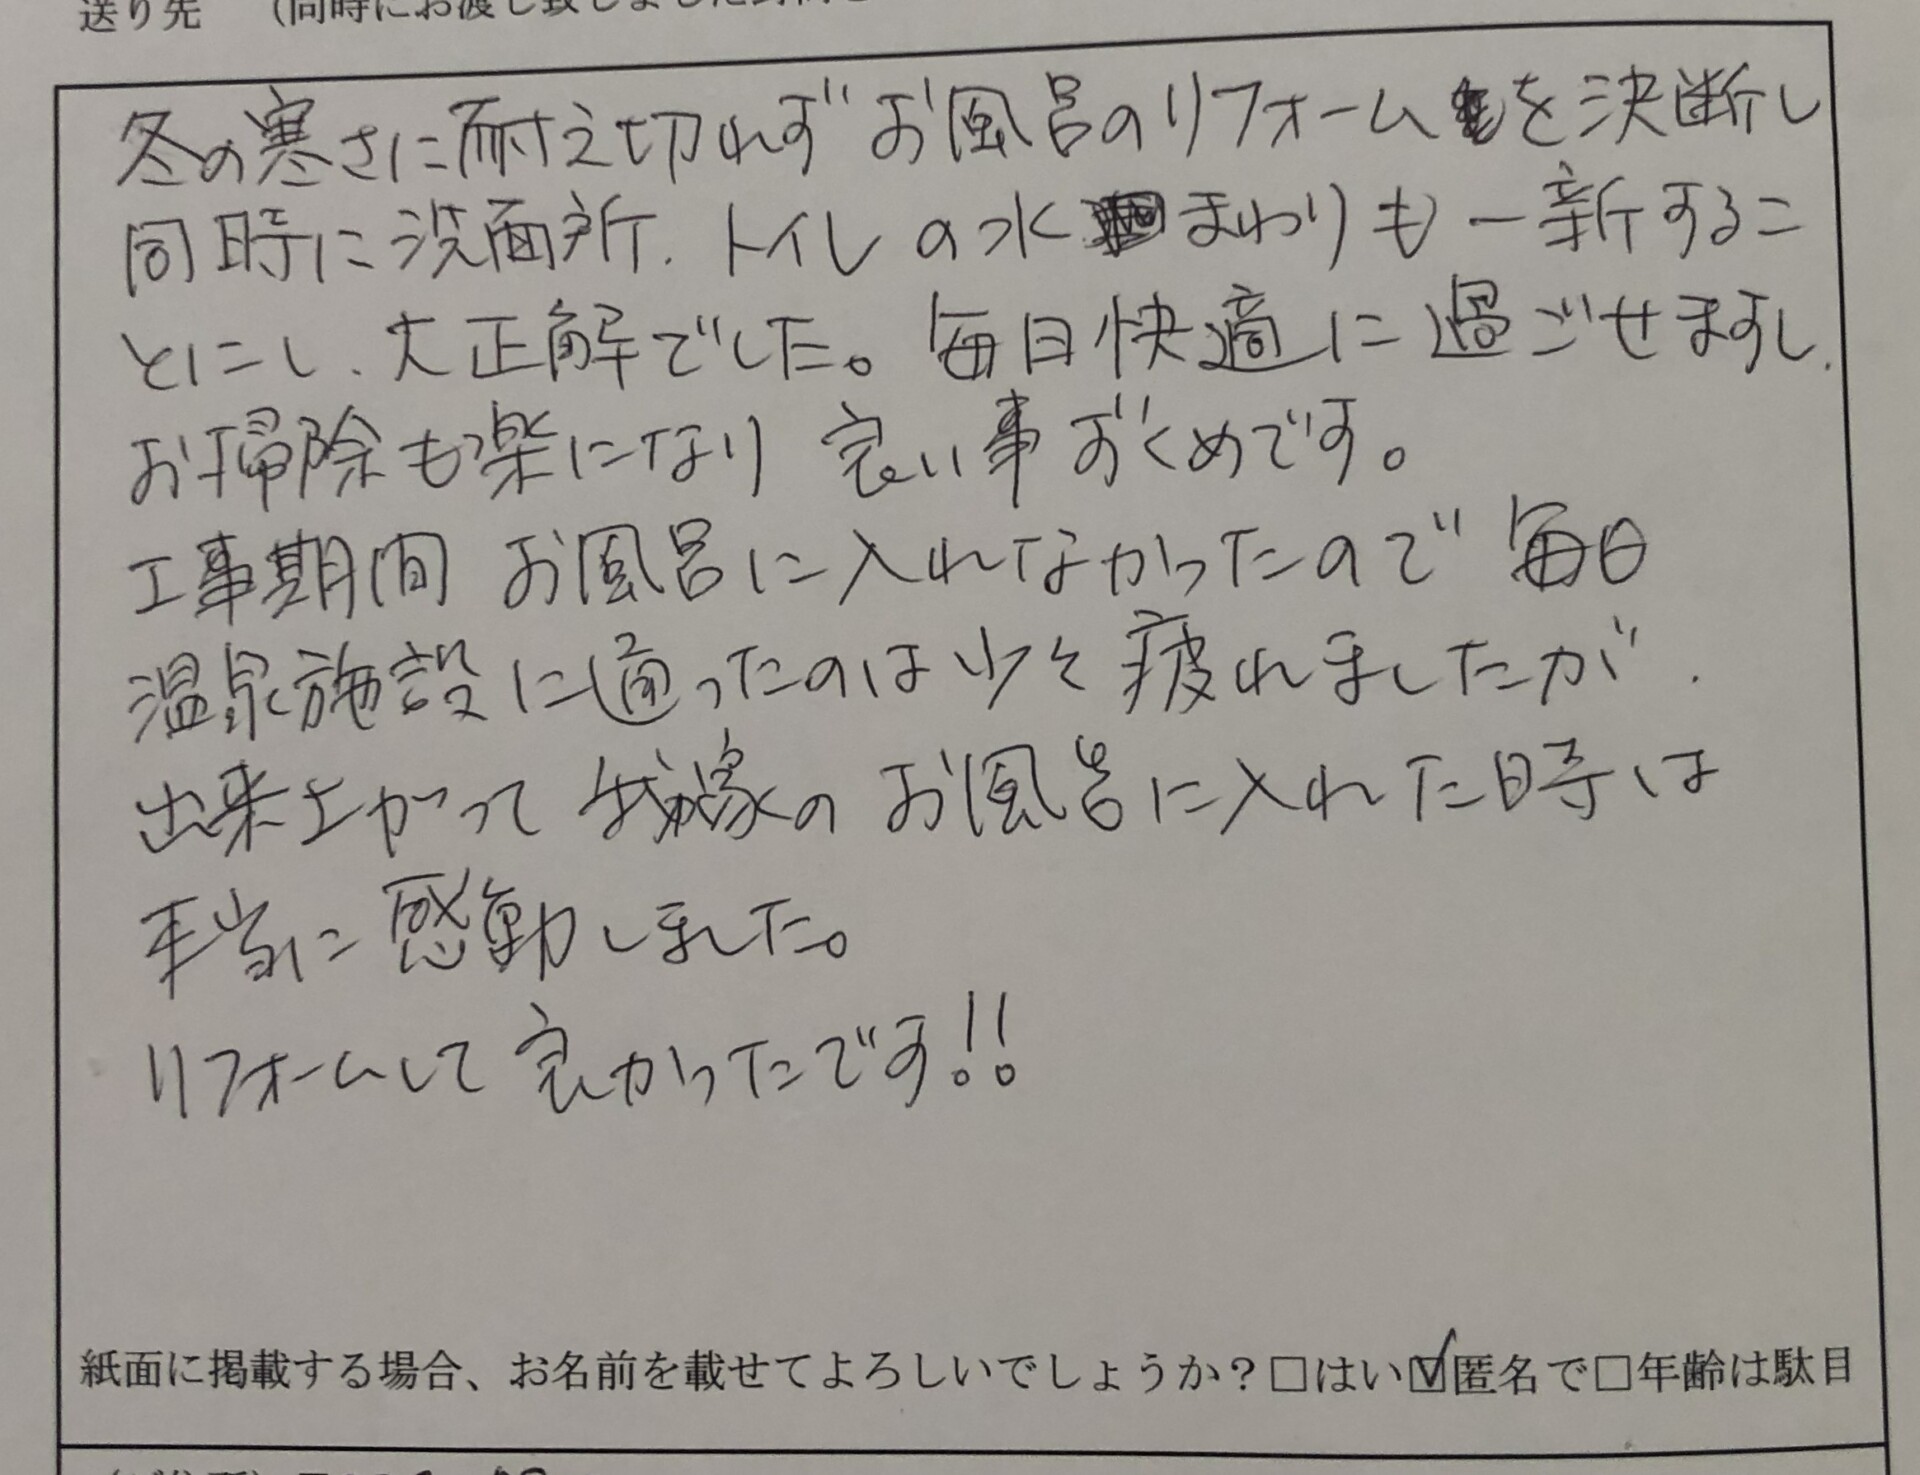 送り先 （同時にお渡し致しました
冬の寒さに耐え切れず お風呂のリフォームを決断し
同時に洗面所、トイレの水まわりも一新するこ
とにし、大正解でした。毎日快適に過ごせますし、
お掃除も楽になり 良い事ずくめです。
工事期間 お風呂に入れなかったので 毎日
温泉施設に通ったのは少々疲れましたが、
出来上がって 我家の お風呂に入れた時は
本当に感動しました。
リフォームして 良かったです!!
紙面に掲載する場合、お名前を載せてよろしいでしょうか？□はい☑匿名で□年齢は駄目